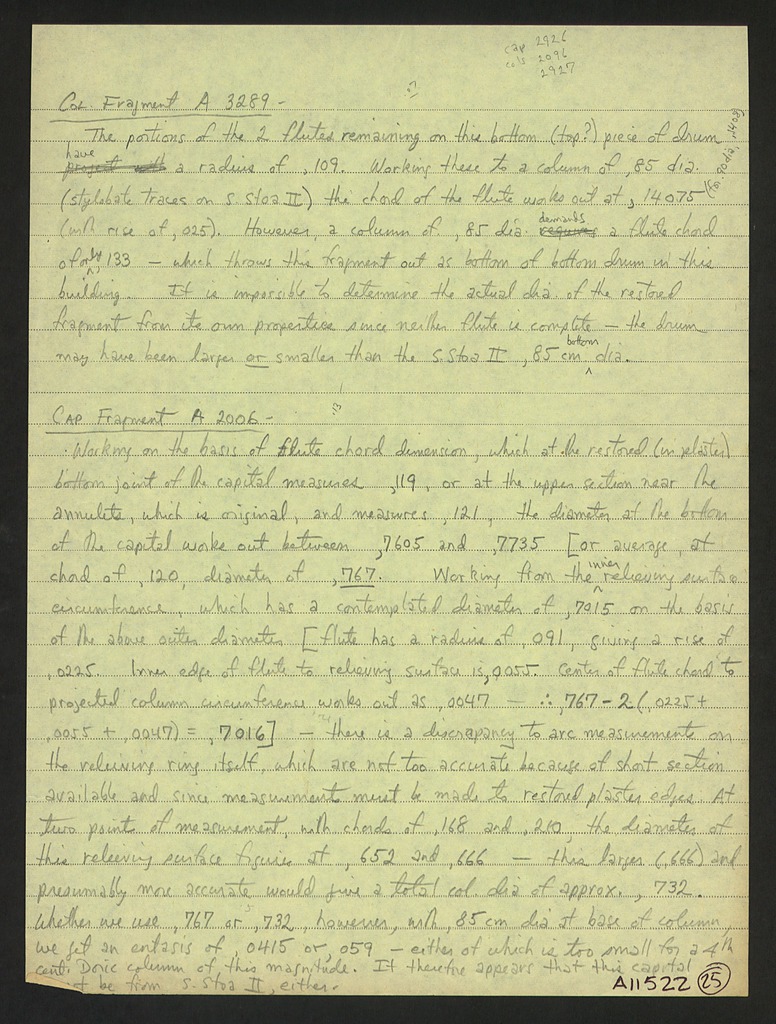 cap 2926
cols 2096
2927
Col. Fragment A 3289 -
The portions of the 2 flutes remaining on this bottom (top?) piece of drum
have
a radius of ,109. Working these to a column of ,85 dia.
(for ,90 dia, ,1408)
(stylobate traces on S. Stoa II) the chord of the flute works out at ,14075
(with rise of ,025). However, a column of ,85 dia. requires demands a flute chord
of only ,133 — which throws this fragment out as bottom of bottom drum in this
building. It is impossible to determine the actual dia. of the restored
fragment from its own properties since neither flute is complete — the drum
may have been larger or smaller than the S. Stoa II ,85 cm bottom dia.
Cap Fragment A 2006 -
Working on the basis of flute chord dimension, which at the restored (in plaster)
bottom joint of the capital measures ,119, or at the upper section near the
annulets, which is original, and measures ,121, the diameter at the bottom
of the capital works out between ,7605 and ,7735 [or average, at
chord of ,120, diameter of ,767. Working from the inner relieving surface
circumference, which has a contemplated diameter of ,7015 on the basis
of the above outer diameter [flute has a radius of ,091, giving a rise of
,0225. Inner edge of flute to relieving surface is ,0055. Center of flute chord to
projected column circumference works out as ,0047 — ∴ ,767 - 2(,0225 +
,0055 + ,0047) = ,7016] — there is a discrepancy to arc measurements on
the relieving ring itself, which are not too accurate because of short section
available and since measurements must be made to restored plaster edges. At
two points of measurement, with chords of ,168 and ,210, the diameter of
this relieving surface figures at ,652 and ,666 — this larger (,666) and
presumably more accurate would give a total col. dia of approx. ,732.
Whether we use ,767 or ,732, however, with ,85 cm dia at base of column,
we get an entasis of ,0415 or ,059 — either of which is too small for a 4th
cent. Doric column of this magnitude. It therefore appears that this capital
be from S. Stoa II, either.
A11522 25